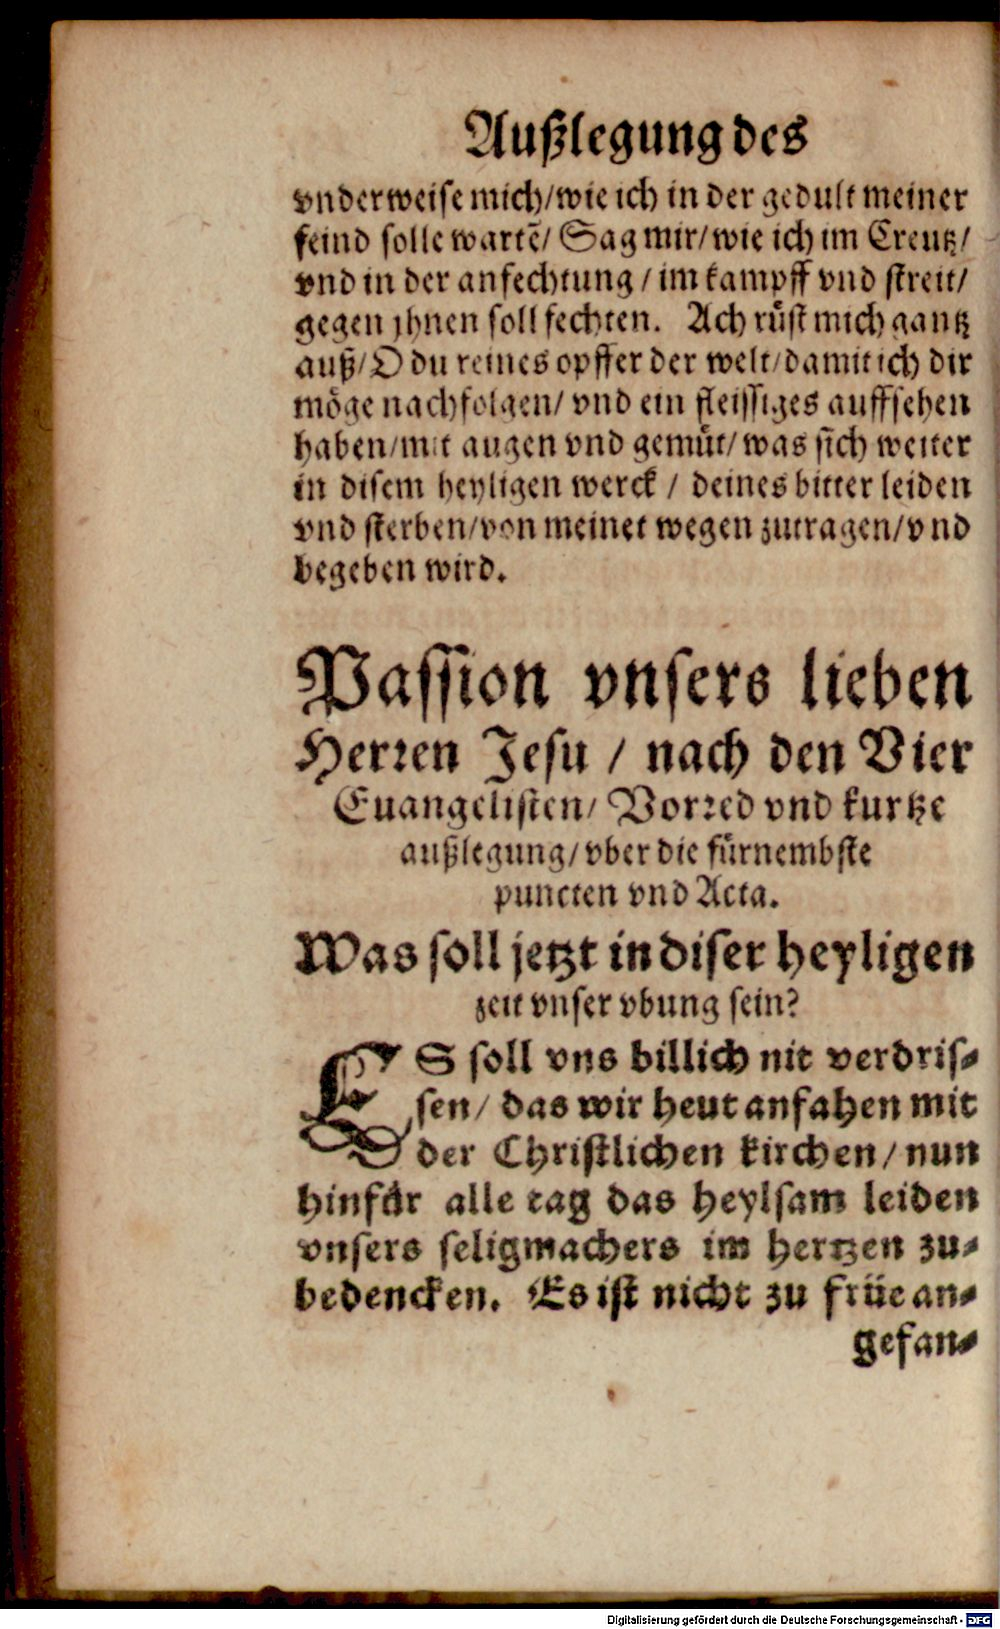 Außlegung des
vnderweise mich/wie ich in der gedult meiner
feind solle wartẽ/ Sag mir/wie ich im Creutz/
vnd in der anfechtung / im kampff vnd streit/
gegen jhnen soll fechten. Ach rüst mich gantz
auß/O du reines opffer der welt/damit ich dir
möge nachfolgen/ vnd ein fleissiges auffsehen
haben/mit augen vnd gemüt/was sich weiter
in disem heyligen werck / deines bitter leiden
vnd sterben/von meinet wegen zutragen/vnd
begeben wird.
Passion vnsers lieben
Herren Jesu / nach den Vier
Euangelisten/ Vorred vnd kurtze
außlegung/vber die fürnembste
puncten vnd Acta.
Was soll jetzt in diser heyligen
zeit vnser vbung sein?
ES soll vns billich nit verdris-
sen/ das wir heut anfahen mit
der Christlichen kirchen/nun
hinfür alle tag das heylsam leiden
vnsers seligmachers im hertzen zu-
bedencken. Es ist nicht zu früe an-
gefan-
Digitalisierung gefördert durch die Deutsche Forschungsgemeinschaft - DFG